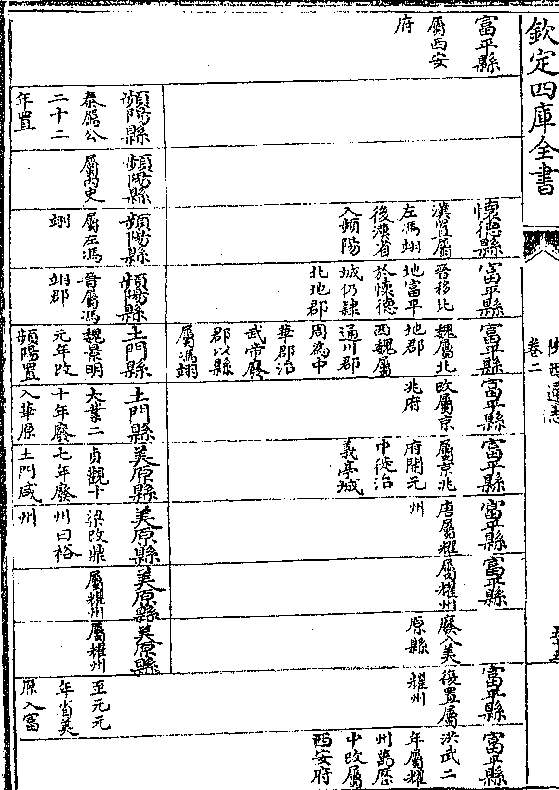 欽定四庫全書
陝西通志
卷二
富平縣
屬西安
府
懷德縣
漢置屬
左馮翊
後漢省
入頻陽
富平縣
晉移北
地富平
於懷德
城仍隸
北地郡
富平縣
魏屬北
地郡
西魏屬
通川郡
周為中
華郡治
武帝廢
郡以縣
屬馮翊
富平縣
改屬京
兆府
富平縣
屬京兆
府開元
中徙治
義亭城
富平縣
唐屬耀
州
富平縣
屬耀州
廢入美
原縣
富平縣
後置屬
耀州
富平縣
洪武二
年屬耀
州萬歷
中改屬
西安府
頻陽縣
秦厲公
二十二
年置
頻陽縣
屬內史
頻陽縣
屬左馮
翊
頻陽縣
晉屬馮
翊郡
土門縣
魏景明
元年改
頻陽置
土門縣
大業二
十年廢
入華原
美原縣
貞觀十
七年廢
土門咸
美原縣
梁改鼎
州曰裕
州
美原縣
屬耀州
美原縣
屬耀州
至元元
年省美
原入富